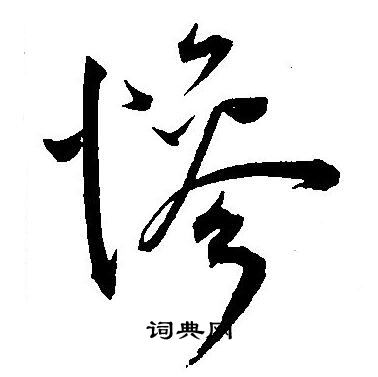 惨
词典网